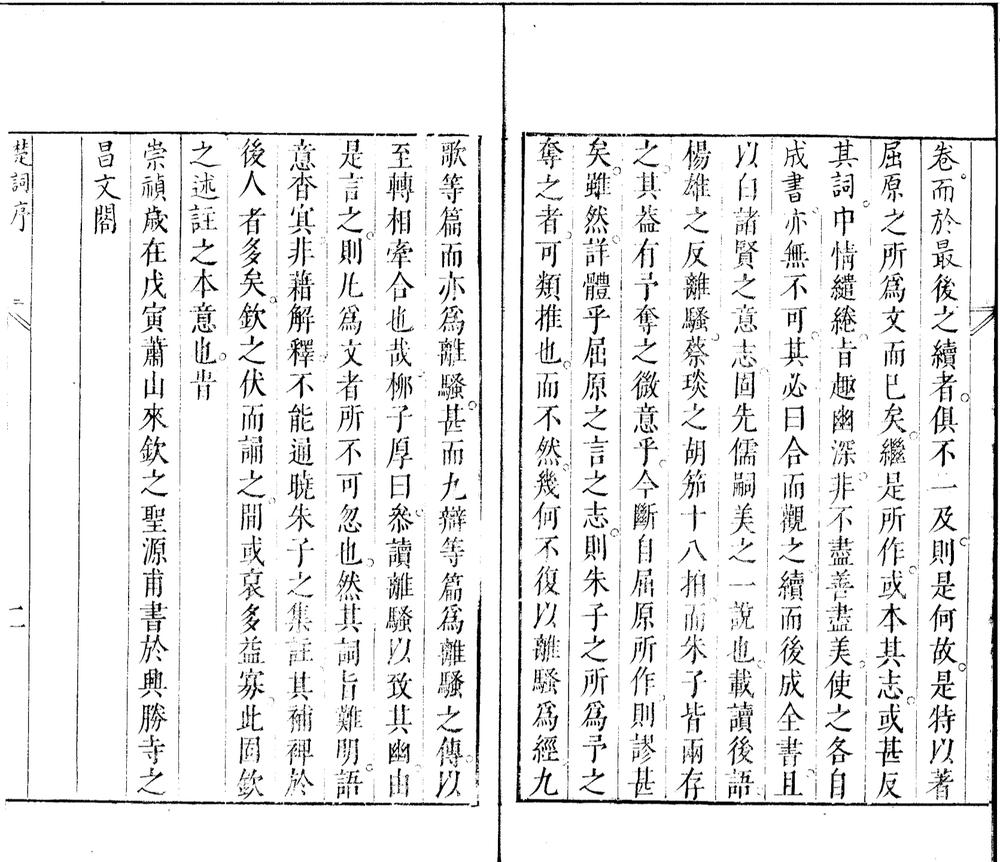 卷而於最後之續者俱不一及則是何故是特以著
屈原之所爲文而已矣繼是所作或本其志或甚反
其詞中情繾綣旨趣幽深非不盡善盡美使之各自
成書亦無不可其必曰合而觀之續而後成全書且
以白諸賢之意志固先儒嗣美之一說也載讀後語
楊雄之反離騷蔡琰之胡笳十八拍而朱子皆兩存
之其葢有予奪之微意乎今斷自屈原所作則謬甚
矣雖然詳體乎屈原之言之志則朱子之所爲予之
奪之者可類推也而不然幾何不復以離騷爲經九
歌等篇而亦爲離騷甚而九辯等篇爲離騷之傳以
至轉相牽合也哉栁子厚曰叅讀離騷以致其幽由
是言之則凡爲文者所不可忽也然其詞旨難明語
意杳冥非藉解釋不能通曉朱子之集註其補裨於
後人者多矣欽之伏而誦之間或裒多益寡此固欽
之述註之本意也旹
崇禎歲在戊寅蕭山來欽之聖源甫書於興勝寺之
昌文閣
楚詞序
二